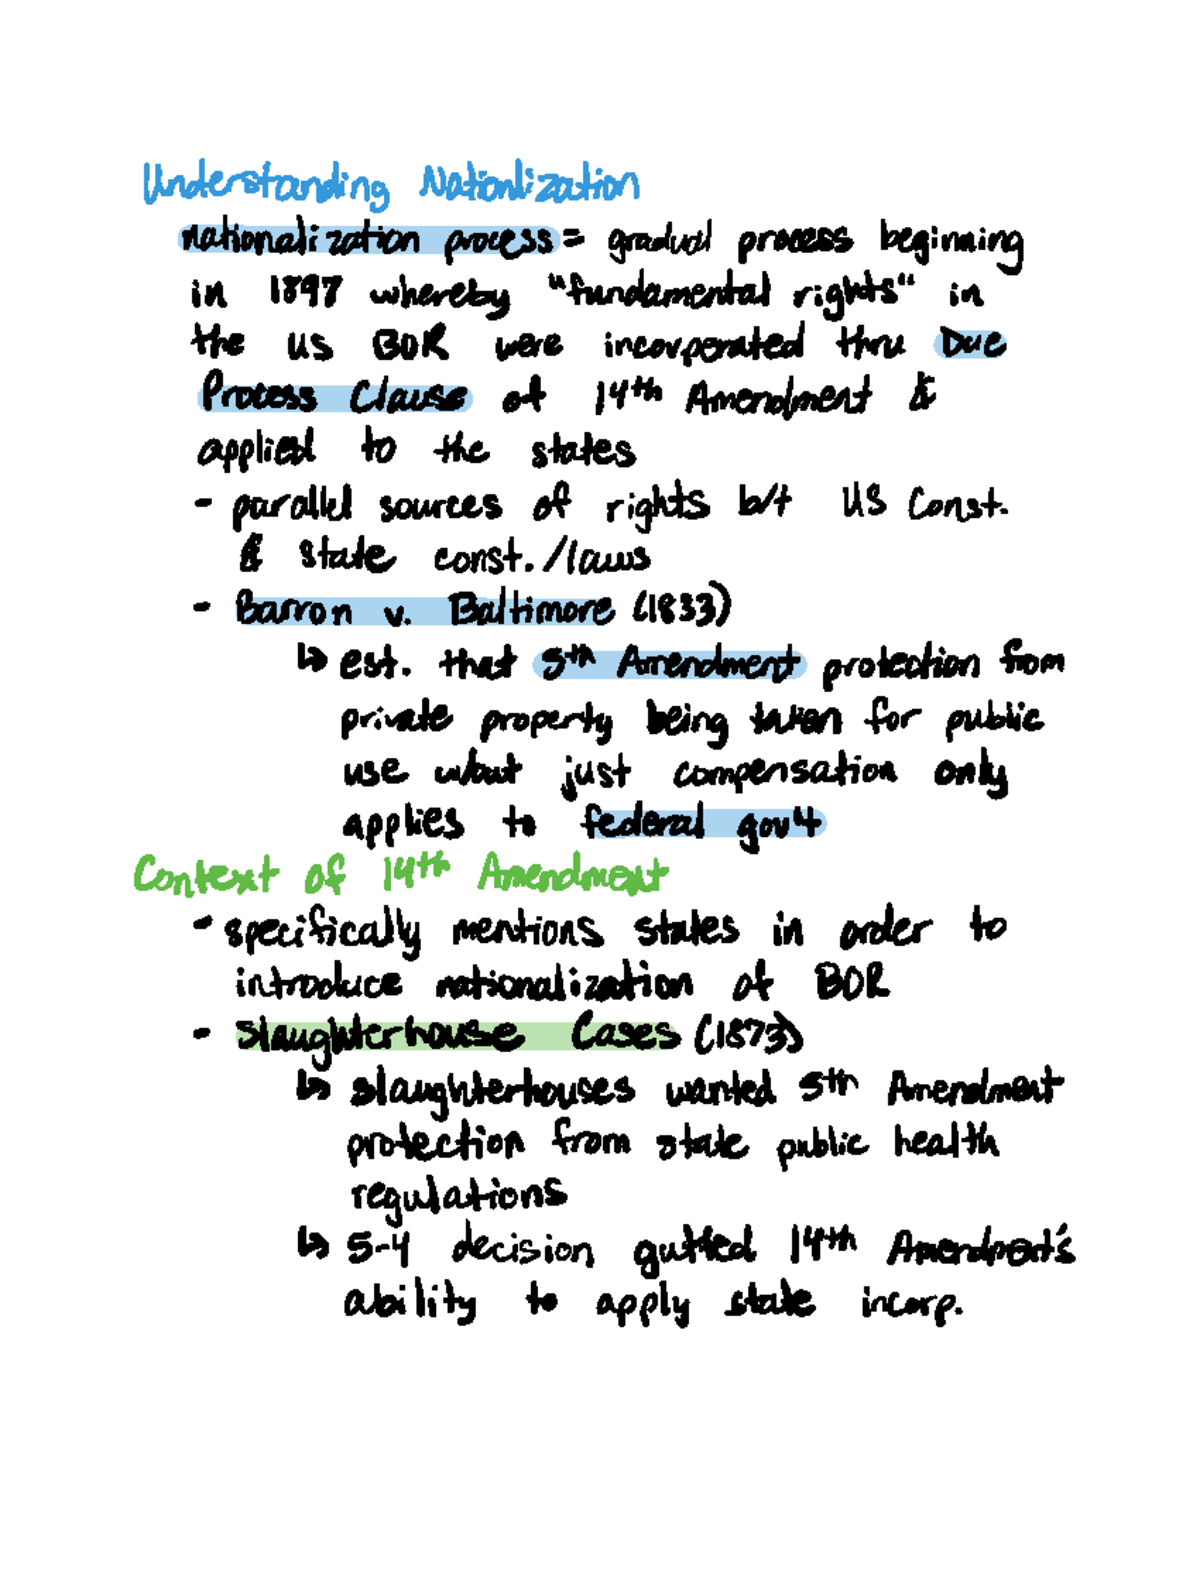 Understanding Nationlization
nationalization process = gradual process beginning
in 1897 whereby "fundamental rights" in
the US BOR were incorporated thru Due
Process Clause of 14th Amendment &
applied to the states
- parallel sources of rights b/t US Const.
& state const./laws
- Barron v. Baltimore (1833)
↳ est. that 5th Amendment protection from
private property being taken for public
use w/out just compensation only
applies to federal gov't
Context of 14th Amendment
- specifically mentions states in order to
introduce nationalization of BOR
- Slaughterhouse Cases (1873)
↳ slaughterhouses wanted 5th Amendment
protection from state public health
regulations
↳ 5-4 decision gutted 14th Amendment's
ability to apply state incorp.